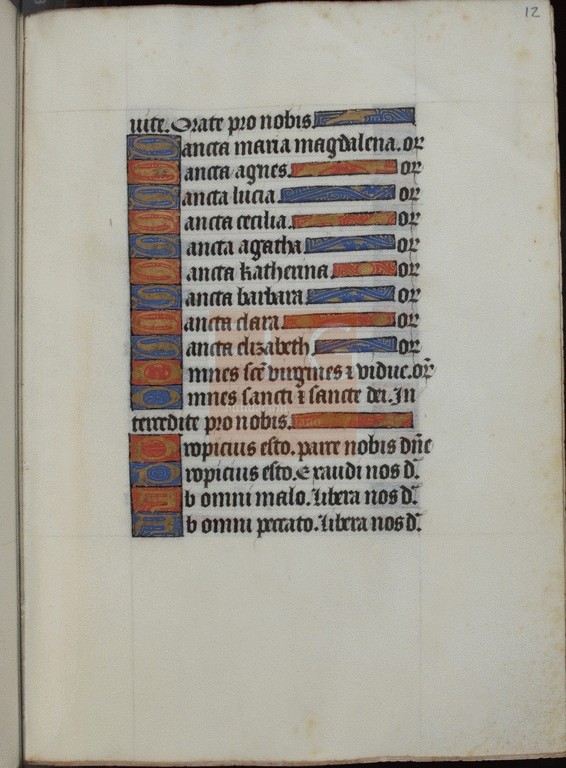 12
uite. Orate pro nobis.
Sancta maria magdalena. or
Sancta agnes. or
Sancta lucia. or
Sancta cecilia. or
Sancta agatha. or
Sancta katherina. or
Sancta barbara. or
Sancta clara. or
Sancta elizabeth. or
Omnes sc̄e virgines ⁊ vidue. or̄
Omnes sancti ⁊ sancte dei. In
tercedite pro nobis.
Propicius esto. parce nobis dn̄e
Propicius esto. Exaudi nos d̄.
Ab omni malo. Libera nos d̄.
Ab omni peccato. Libera nos d̄.